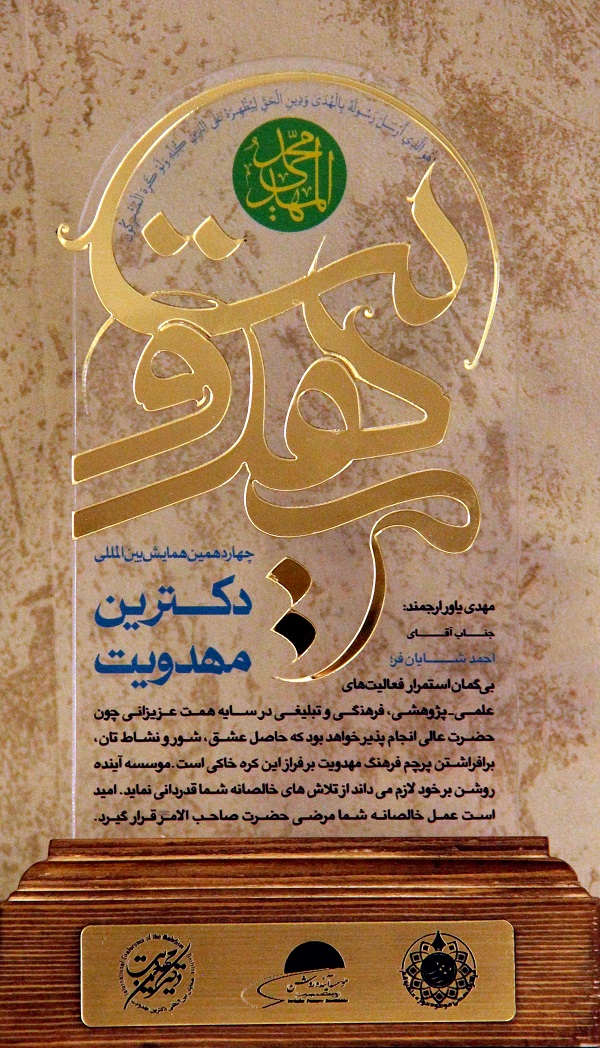 هُوَ الَّذِي أَرْسَلَ رَسُولَهُ بِالْهُدَى وَدِينِ الْحَقِّ لِيُظْهِرَهُ عَلَى الدِّينِ كُلِّهِ وَلَوْ كَرِهَ الْمُشْرِكُونَ
محمد
المهدی
مهدویت
چهاردهمین همایش بین المللی
دکترین
مهدویت
مهدی یاور ارجمند:
جناب آقای
احمد شایان فر؛
بی‌گمان استمرار فعالیت‌های
علمی-پژوهشی، فرهنگی و تبلیغی در سایه همت عزیزانی چون
حضرت عالی انجام پذیر خواهد بود که حاصل عشق، شور و نشاط تان،
برافراشتن پرچم فرهنگ مهدویت بر فراز این کره خاکی است. موسسه آینده
روشن بر خود لازم می داند از تلاش های خالصانه شما قدردانی نماید. امید
است عمل خالصانه شما مرضی حضرت صاحب الامر قرار گیرد.
موسسه آینده روشن
دکترین مهدویت